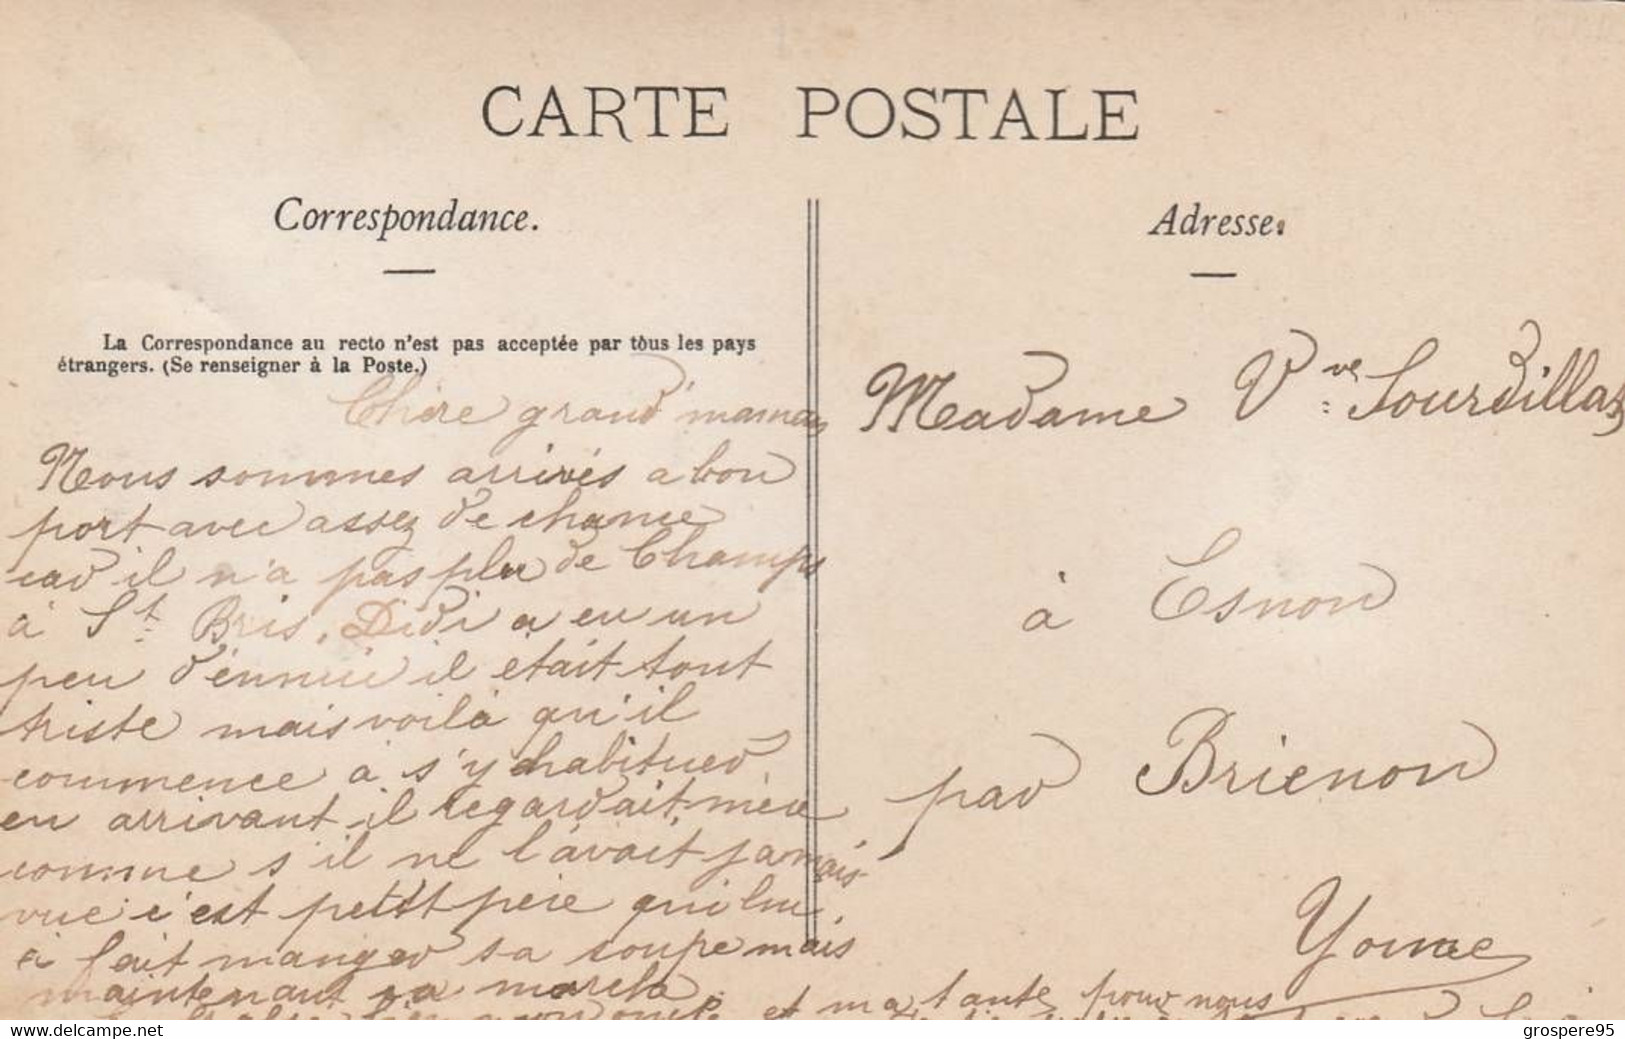 CARTE POSTALE
Correspondance.
La Correspondance au recto n'est pas acceptée par tous les pays
étrangers. (Se renseigner à la Poste.)
Chère grand'maman
Nous sommes arrivés a bon
port avec assez de chance
car il n'a pas plu de Champs
à St Bris. Didi a eu un
peu d'ennui il etait tout
triste mais voilà qu'il
commence à s'y habituer
en arrivant il regardait mère
comme s'il ne l'avait jamais
vue c'est petit père qui lui
a fait manger sa soupe mais
maintenant ça marche
et ma tante pour nous
Adresse.
Madame Vve Sourdillat
à Esnon
par Brienon
Yonne
www.delcampe.net
grospere95